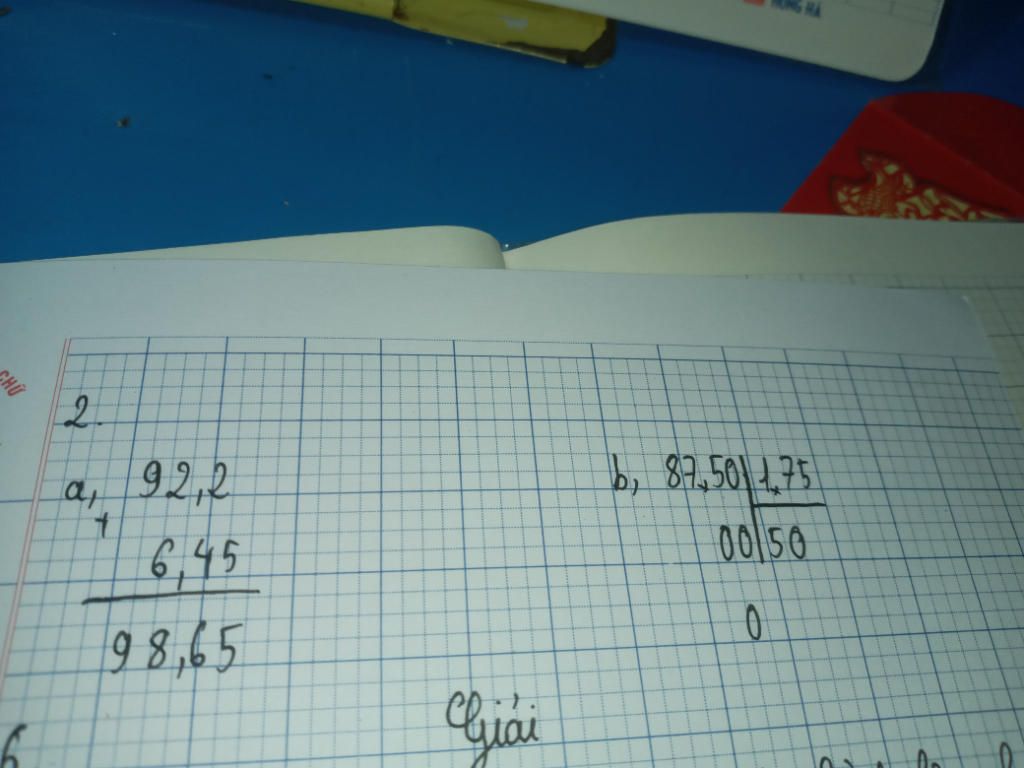 HỒNG HÀ
CHỮ
2.
a, 92,2
+
6,45
98,65
b, 87,50 1,75
00 50
0
Giải
6